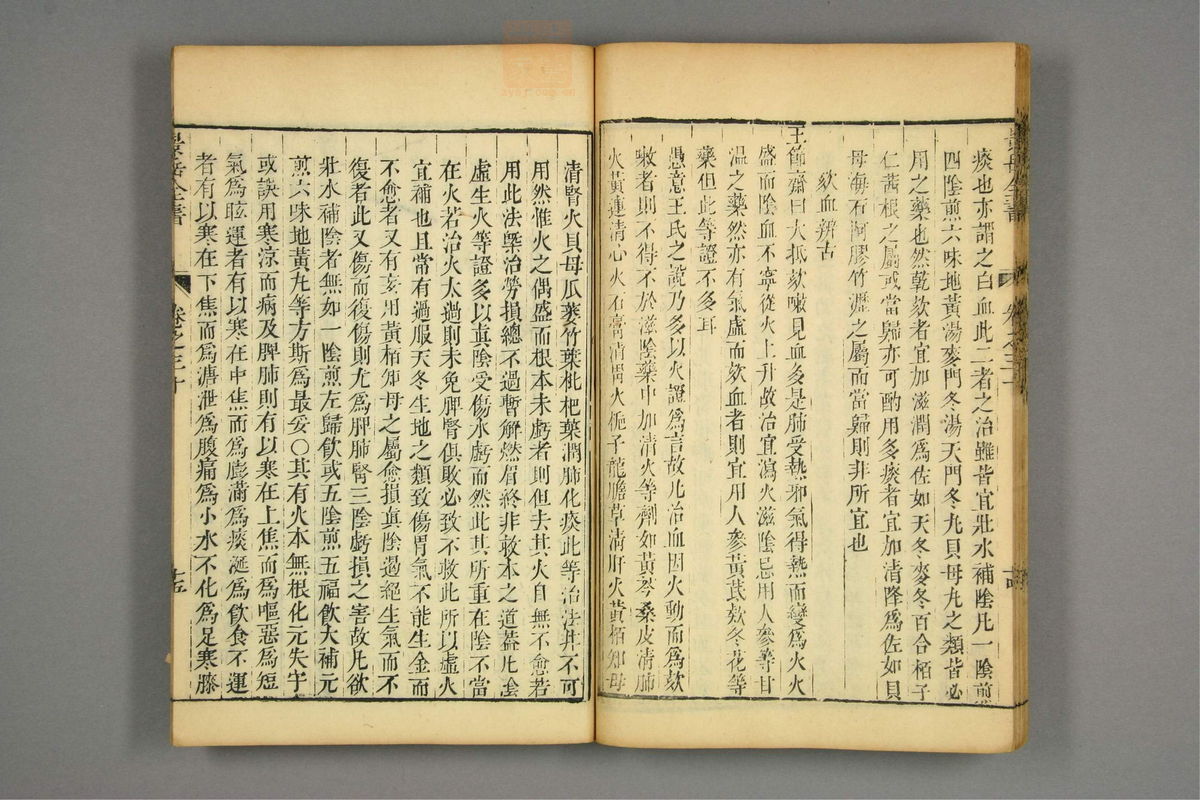 痰也亦謂之白血此二者之治雖皆宜壯水補陰凡一陰煎
四陰煎六味地黃湯麥門冬湯天門冬丸貝母丸之類皆必
用之藥也然乾欬者宜加滋潤爲佐如天冬麥冬百合栢子
仁茜根之屬或當歸亦可酌用多痰者宜加清降爲佐如貝
母海石阿膠竹瀝之屬而當歸則非所宜也
欬血辨古
王節齋曰大抵欬嗽見血多是肺受熱邪氣得熱而變爲火火
盛而陰血不寧從火上升故治宜瀉火滋陰忌用人參等甘
温之藥然亦有氣虛而欬血者則宜用人參黃芪欬冬花等
藥但此等證不多耳
愚意王氏之說乃多以火證爲言故凡治血因火動而爲欬
嗽者則不得不於滋陰藥中加清火等劑如黃芩桑皮清肺
火黃連清心火石膏清胃火梔子龍膽草清肝火黃栢知母
清腎火貝母瓜蔞竹葉枇杷葉潤肺化痰此等治法非不可
用然惟火之偶盛而根本未虧者則但去其火自無不愈若
用此法槩治勞損總不過暫解燃眉終非救本之道葢凡
虛生火等證多以眞陰受傷水虧而然此其所重在陰不當
在火若治火太過則未免脾腎俱敗必致不救此所以虛火
宜補也且常有過服天冬生地之類致傷胃氣不能生金而
不愈者又有妄用黃栢知母之屬愈損眞陰遏絕生氣而不
復者此又傷而復傷則尤爲脾肺腎三陰虧損之害故凡欲
壯水補陰者無如一陰煎左歸飲或五陰煎五福飲大補元
煎六味地黃丸等方斯爲最妥○其有火本無根化元失守
或誤用寒涼而病及脾肺則有以寒在上焦而爲嘔惡爲短
氣爲眩運者有以寒在中焦而爲膨滿爲痰涎爲飲食不運
者有以寒在下焦而爲溏泄爲腹痛爲小水不化爲足寒膝
景岳全書
卷之三十